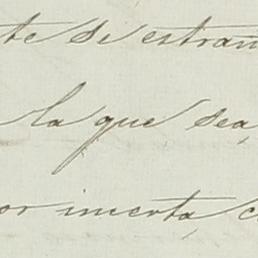 te de estrañ
la que sea,
or incerta, c